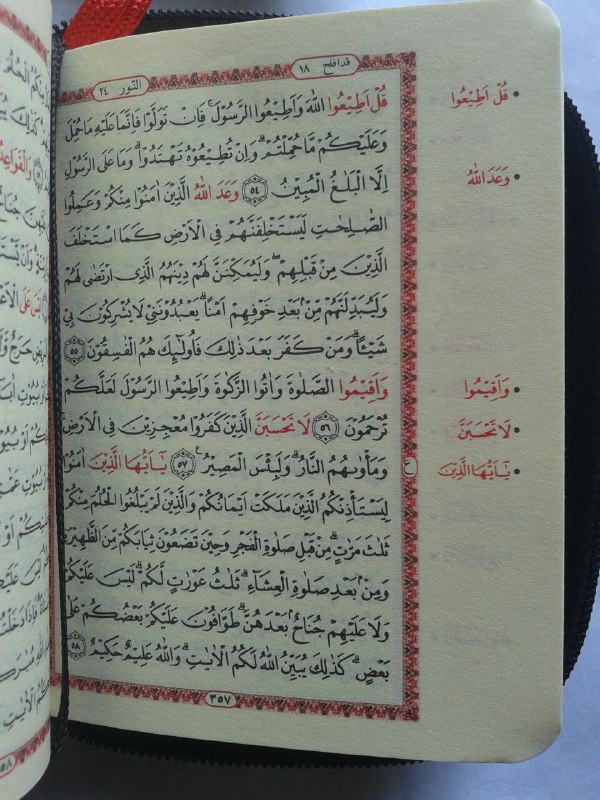 قدافلح ١٨
النور ٢٤
قُلْ اَطِيْعُوا اللّٰهَ وَاَطِيْعُوا الرَّسُوْلَۚ فَاِنْ تَوَلَّوْا فَاِنَّمَا عَلَيْهِ مَا حُمِّلَ
وَعَلَيْكُمْ مَّا حُمِّلْتُمْۗ وَاِنْ تُطِيْعُوْهُ تَهْتَدُوْاۗ وَمَا عَلَى الرَّسُوْلِ
اِلَّا الْبَلٰغُ الْمُبِيْنُ ٥٤ وَعَدَ اللّٰهُ الَّذِيْنَ اٰمَنُوْا مِنْكُمْ وَعَمِلُوا
الصّٰلِحٰتِ لَيَسْتَخْلِفَنَّهُمْ فِى الْاَرْضِ كَمَا اسْتَخْلَفَ
الَّذِيْنَ مِنْ قَبْلِهِمْۖ وَلَيُمَكِّنَنَّ لَهُمْ دِيْنَهُمُ الَّذِى ارْتَضٰى لَهُمْ
وَلَيُبَدِّلَنَّهُمْ مِّنْۢ بَعْدِ خَوْفِهِمْ اَمْنًاۗ يَعْبُدُوْنَنِيْ لَا يُشْرِكُوْنَ بِيْ
شَيْـًٔاۗ وَمَنْ كَفَرَ بَعْدَ ذٰلِكَ فَاُولٰۤىِٕكَ هُمُ الْفٰسِقُوْنَ ٥٥
وَاَقِيْمُوا الصَّلٰوةَ وَاٰتُوا الزَّكٰوةَ وَاَطِيْعُوا الرَّسُوْلَ لَعَلَّكُمْ
تُرْحَمُوْنَ ٥٦ لَا تَحْسَبَنَّ الَّذِيْنَ كَفَرُوْا مُعْجِزِيْنَ فِى الْاَرْضِۚ
وَمَأْوٰىهُمُ النَّارُۗ وَلَبِئْسَ الْمَصِيْرُ ࣖ ٥٧ يٰٓاَيُّهَا الَّذِيْنَ اٰمَنُوْا
لِيَسْتَأْذِنْكُمُ الَّذِيْنَ مَلَكَتْ اَيْمَانُكُمْ وَالَّذِيْنَ لَمْ يَبْلُغُوا الْحُلُمَ مِنْكُمْ
ثَلٰثَ مَرّٰتٍۗ مِنْ قَبْلِ صَلٰوةِ الْفَجْرِ وَحِيْنَ تَضَعُوْنَ ثِيَابَكُمْ مِّنَ الظَّهِيْرَةِ
وَمِنْۢ بَعْدِ صَلٰوةِ الْعِشَاۤءِۗ ثَلٰثُ عَوْرٰتٍ لَّكُمْۗ لَيْسَ عَلَيْكُمْ
وَلَا عَلَيْهِمْ جُنَاحٌۢ بَعْدَهُنَّۗ طَوَّافُوْنَ عَلَيْكُمْ بَعْضُكُمْ عَلٰى
بَعْضٍۗ كَذٰلِكَ يُبَيِّنُ اللّٰهُ لَكُمُ الْاٰيٰتِۗ وَاللّٰهُ عَلِيْمٌ حَكِيْمٌ ٥٨
٣٥٧
• قُلْ اَطِيْعُوا
• وَعَدَ اللّٰهُ
• وَاَقِيْمُوا
• لَا تَحْسَبَنَّ
ع
• يٰٓاَيُّهَا الَّذِيْنَ